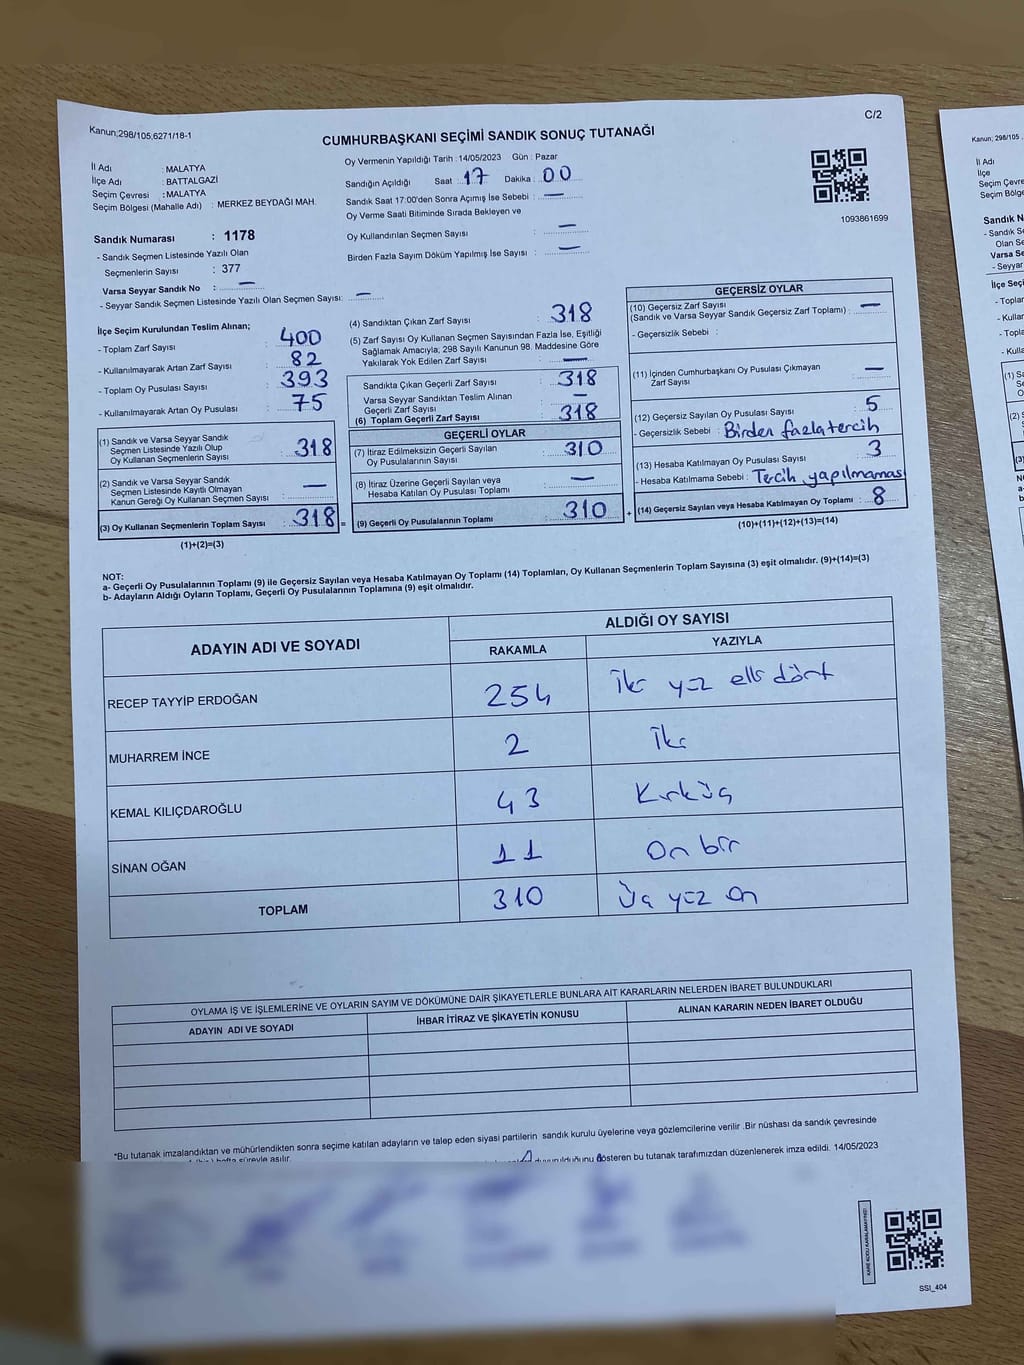 Kanun;298/105;6271/18-1
C/2
CUMHURBAŞKANI SEÇİMİ SANDIK SONUÇ TUTANAĞI
İl Adı : MALATYA
İlçe Adı : BATTALGAZİ
Seçim Çevresi : MALATYA
Seçim Bölgesi (Mahalle Adı) : MERKEZ BEYDAĞI MAH.
Sandık Numarası : 1178
- Sandık Seçmen Listesinde Yazılı Olan
Seçmenlerin Sayısı : 377
Varsa Seyyar Sandık No : —
- Seyyar Sandık Seçmen Listesinde Yazılı Olan Seçmen Sayısı: —
Oy Vermenin Yapıldığı Tarih : 14/05/2023 Gün : Pazar
Sandığın Açıldığı Saat : 17 Dakika : 00
Sandık Saat 17:00'den Sonra Açımış İse Sebebi : —
Oy Verme Saati Bitiminde Sırada Bekleyen ve
Oy Kullandırılan Seçmen Sayısı : —
Birden Fazla Sayım Döküm Yapılmış İse Sayısı : —
1093861699
İlçe Seçim Kurulundan Teslim Alınan;
- Toplam Zarf Sayısı : 400
- Kullanılmayarak Artan Zarf Sayısı : 82
- Toplam Oy Pusulası Sayısı : 393
- Kullanılmayarak Artan Oy Pusulası : 75
(1) Sandık ve Varsa Seyyar Sandık
Seçmen Listesinde Yazılı Olup
Oy Kullanan Seçmenlerin Sayısı : 318
(2) Sandık ve Varsa Seyyar Sandık
Seçmen Listesinde Kayıtlı Olmayan
Kanun Gereği Oy Kullanan Seçmen Sayısı : —
(3) Oy Kullanan Seçmenlerin Toplam Sayısı : 318 =
(1)+(2)=(3)
(4) Sandıktan Çıkan Zarf Sayısı : 318
(5) Zarf Sayısı Oy Kullanan Seçmen Sayısından Fazla İse, Eşitliği
Sağlamak Amacıyla; 298 Sayılı Kanunun 98. Maddesine Göre
Yakılarak Yok Edilen Zarf Sayısı : —
Sandıkta Çıkan Geçerli Zarf Sayısı : 318
Varsa Seyyar Sandıktan Teslim Alınan
Geçerli Zarf Sayısı : —
(6) Toplam Geçerli Zarf Sayısı : 318
GEÇERLİ OYLAR
(7) İtiraz Edilmeksizin Geçerli Sayılan
Oy Pusulalarının Sayısı : 310
(8) İtiraz Üzerine Geçerli Sayılan veya
Hesaba Katılan Oy Pusulası Toplamı : —
(9) Geçerli Oy Pusulalarının Toplamı : 310 +
GEÇERSİZ OYLAR
(10) Geçersiz Zarf Sayısı
(Sandık ve Varsa Seyyar Sandık Geçersiz Zarf Toplamı) : —
- Geçersizlik Sebebi :
(11) İçinden Cumhurbaşkanı Oy Pusulası Çıkmayan
Zarf Sayısı : —
(12) Geçersiz Sayılan Oy Pusulası Sayısı : 5
- Geçersizlik Sebebi : Birden fazla tercih
(13) Hesaba Katılmayan Oy Pusulası Sayısı : 3
- Hesaba Katılmama Sebebi : Tercih yapılmaması
(14) Geçersiz Sayılan veya Hesaba Katılmayan Oy Toplamı : 8
(10)+(11)+(12)+(13)=(14)
NOT:
a- Geçerli Oy Pusulalarının Toplamı (9) ile Geçersiz Sayılan veya Hesaba Katılmayan Oy Toplamı (14) Toplamları, Oy Kullanan Seçmenlerin Toplam Sayısına (3) eşit olmalıdır. (9)+(14)=(3)
b- Adayların Aldığı Oyların Toplamı, Geçerli Oy Pusulalarının Toplamına (9) eşit olmalıdır.
ADAYIN ADI VE SOYADI
ALDIĞI OY SAYISI
RAKAMLA YAZIYLA
RECEP TAYYİP ERDOĞAN 254 İki yüz elli dört
MUHARREM İNCE 2 İki
KEMAL KILIÇDAROĞLU 43 Kırküç
SİNAN OĞAN 11 On bir
TOPLAM 310 Üç yüz on
OYLAMA İŞ VE İŞLEMLERİNE VE OYLARIN SAYIM VE DÖKÜMÜNE DAİR ŞİKAYETLERLE BUNLARA AİT KARARLARIN NELERDEN İBARET BULUNDUKLARI
ADAYIN ADI VE SOYADI İHBAR İTİRAZ VE ŞİKAYETİN KONUSU ALINAN KARARIN NEDEN İBARET OLDUĞU
*Bu tutanak imzalandıktan ve mühürlendikten sonra seçime katılan adayların ve talep eden siyasi partilerin sandık kurulu üyelerine veya gözlemcilerine verilir .Bir nüshası da sandık çevresinde
hafta süreyle asılır. duyurulduğunu gösteren bu tutanak tarafımızdan düzenlenerek imza edildi. 14/05/2023
KARE KODU KARALAMAYINIZ!
SSI_404
Kanun; 298/105
İl Adı
İlçe
Seçim Çevre
Seçim Bölg
Sandık N
- Sandık S
Olan Se
Varsa Se
- Seyyar
İlçe Seç
- Toplar
- Kullar
- Topla
- Kulla